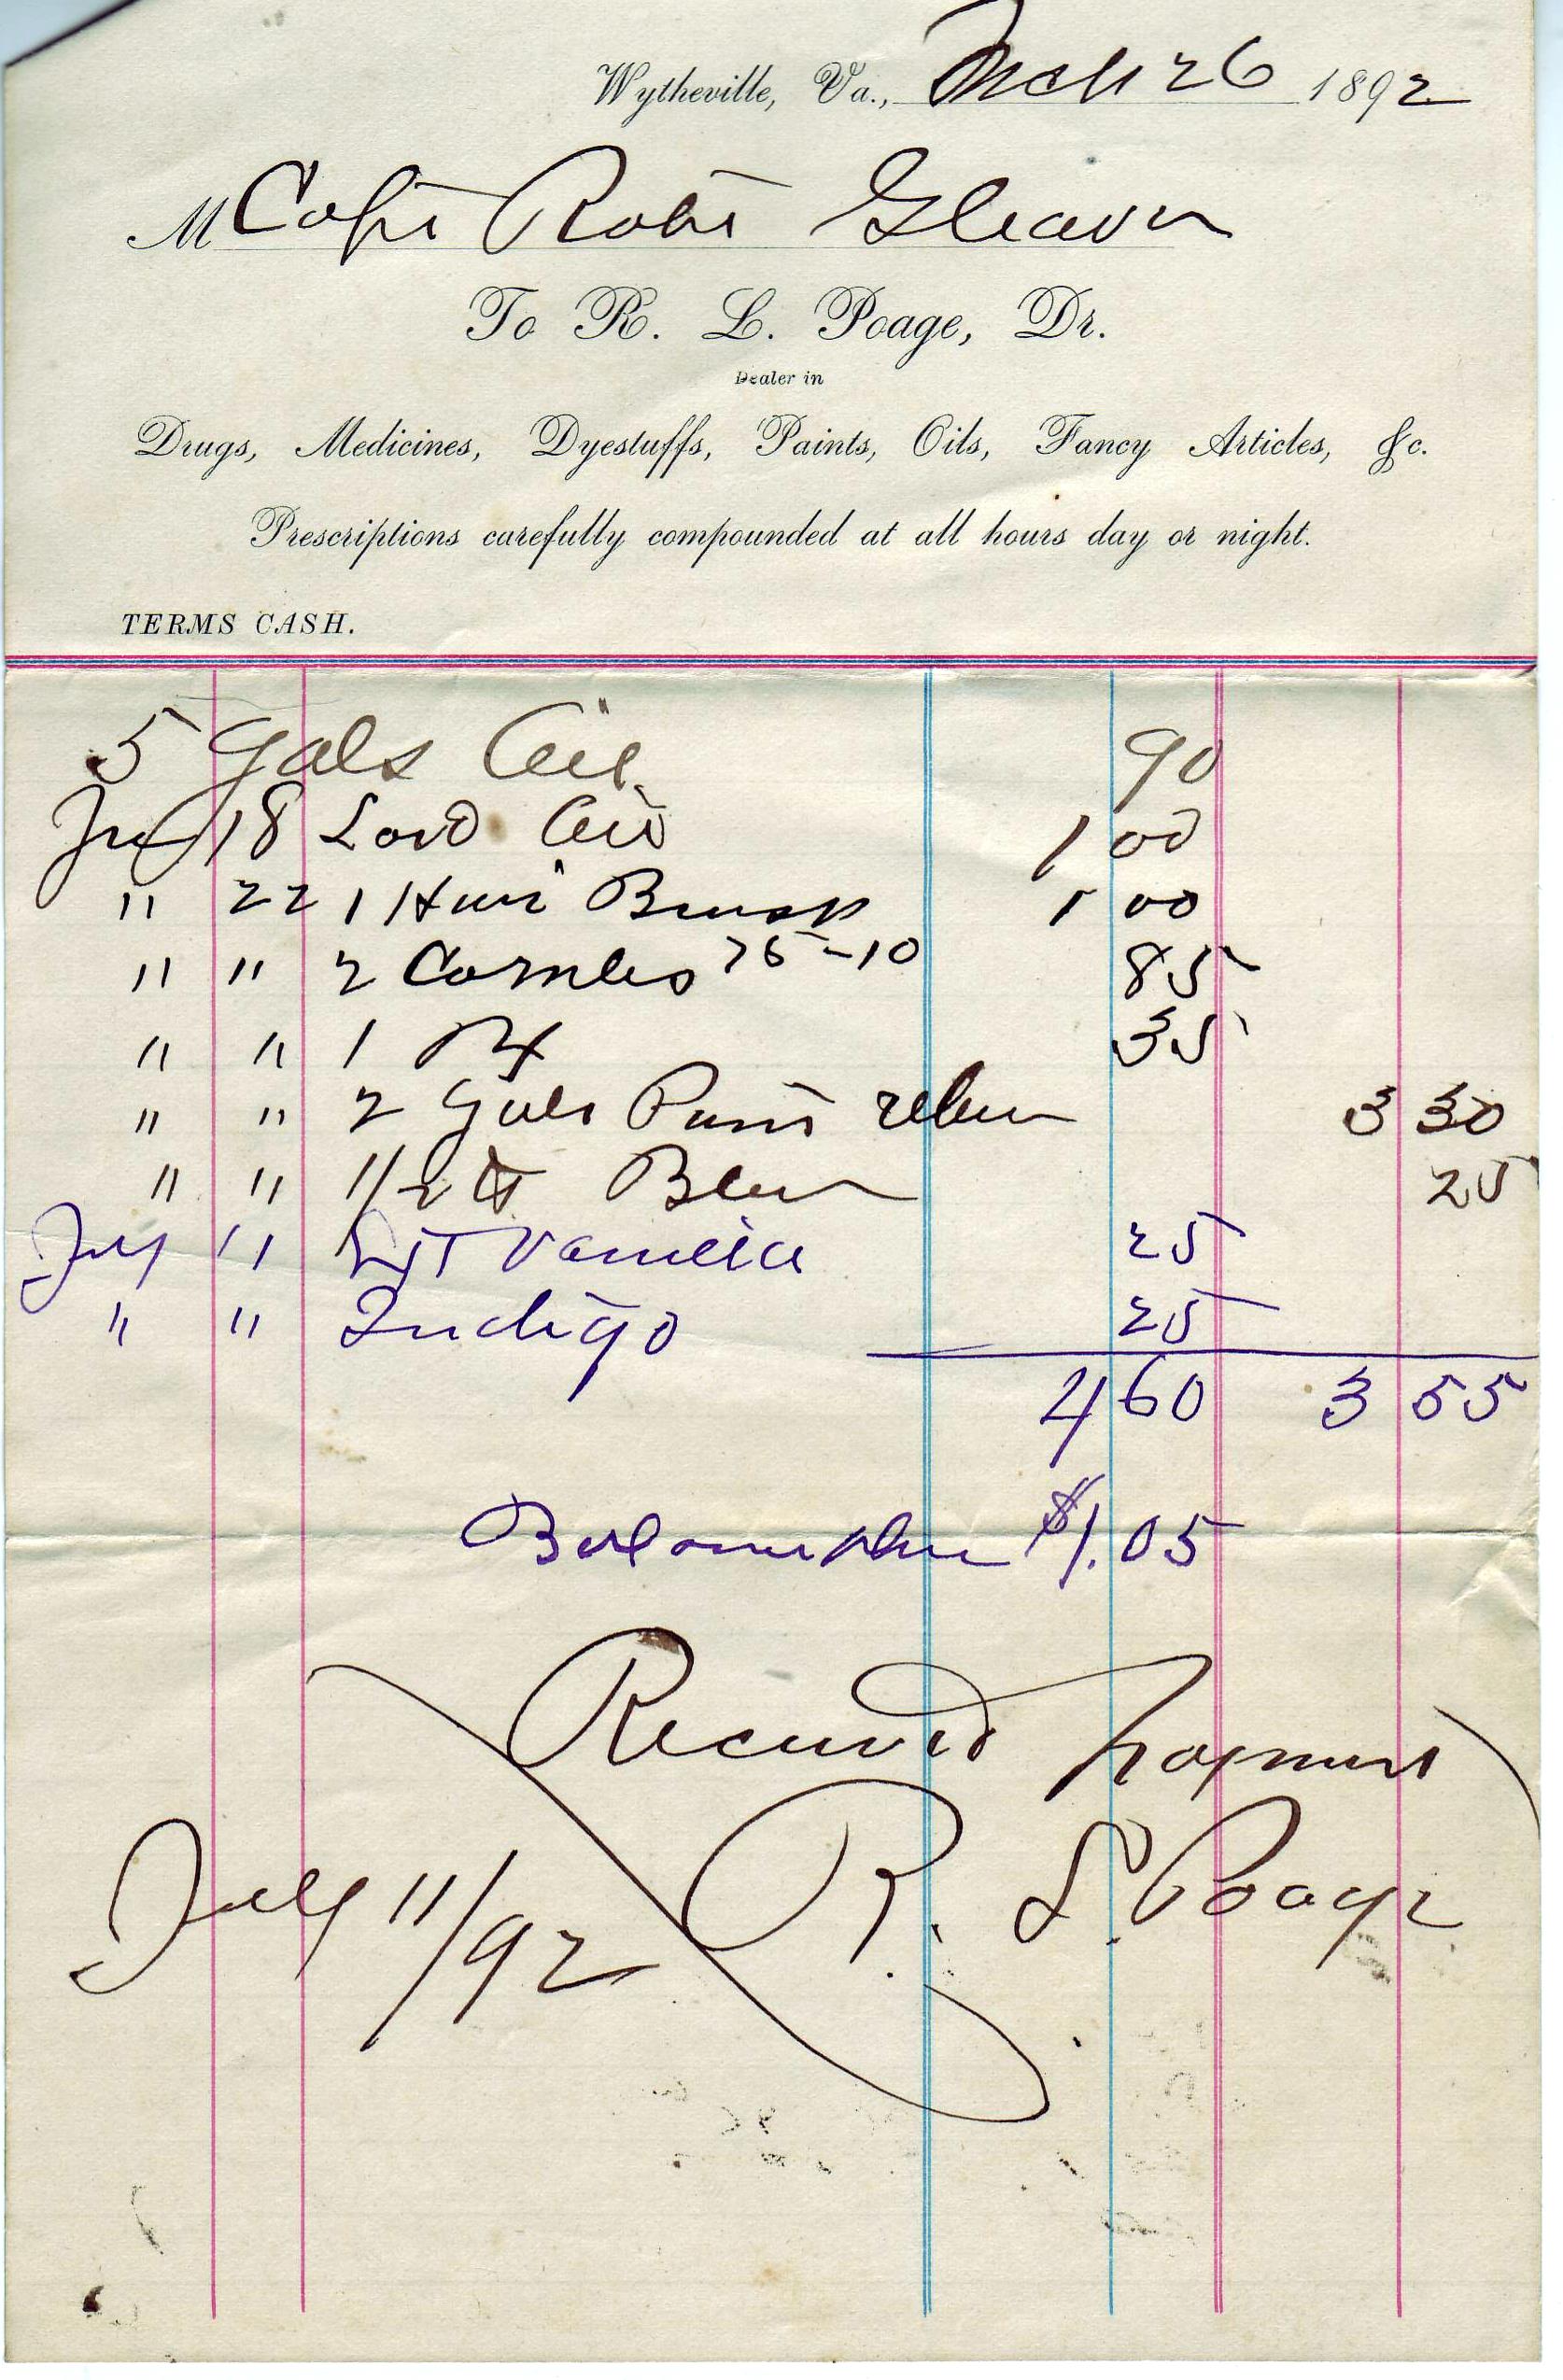 Wytheville, Va., Mch 26 1892
M Capt Robt Gleaves
To R. L. Poage, Dr.
Dealer in
Drugs, Medicines, Dyestuffs, Paints, Oils, Fancy Articles, &c.
Prescriptions carefully compounded at all hours day or night.
TERMS CASH.
5 Gals Oil 90
18 Lard Oil 1 00
" 22 1 Hair Brush 1 00
" " 2 Combs 75-10 85
" " 1 Rx 35
" " 2 Gals Paint return 3 30
" " 1/2 # Blue 25
July 11 Ext Vanilla 25
" " Indigo 25
4 60 3 55
Balance due $1.05
Received Payment
July 11/92 R. L. Poage